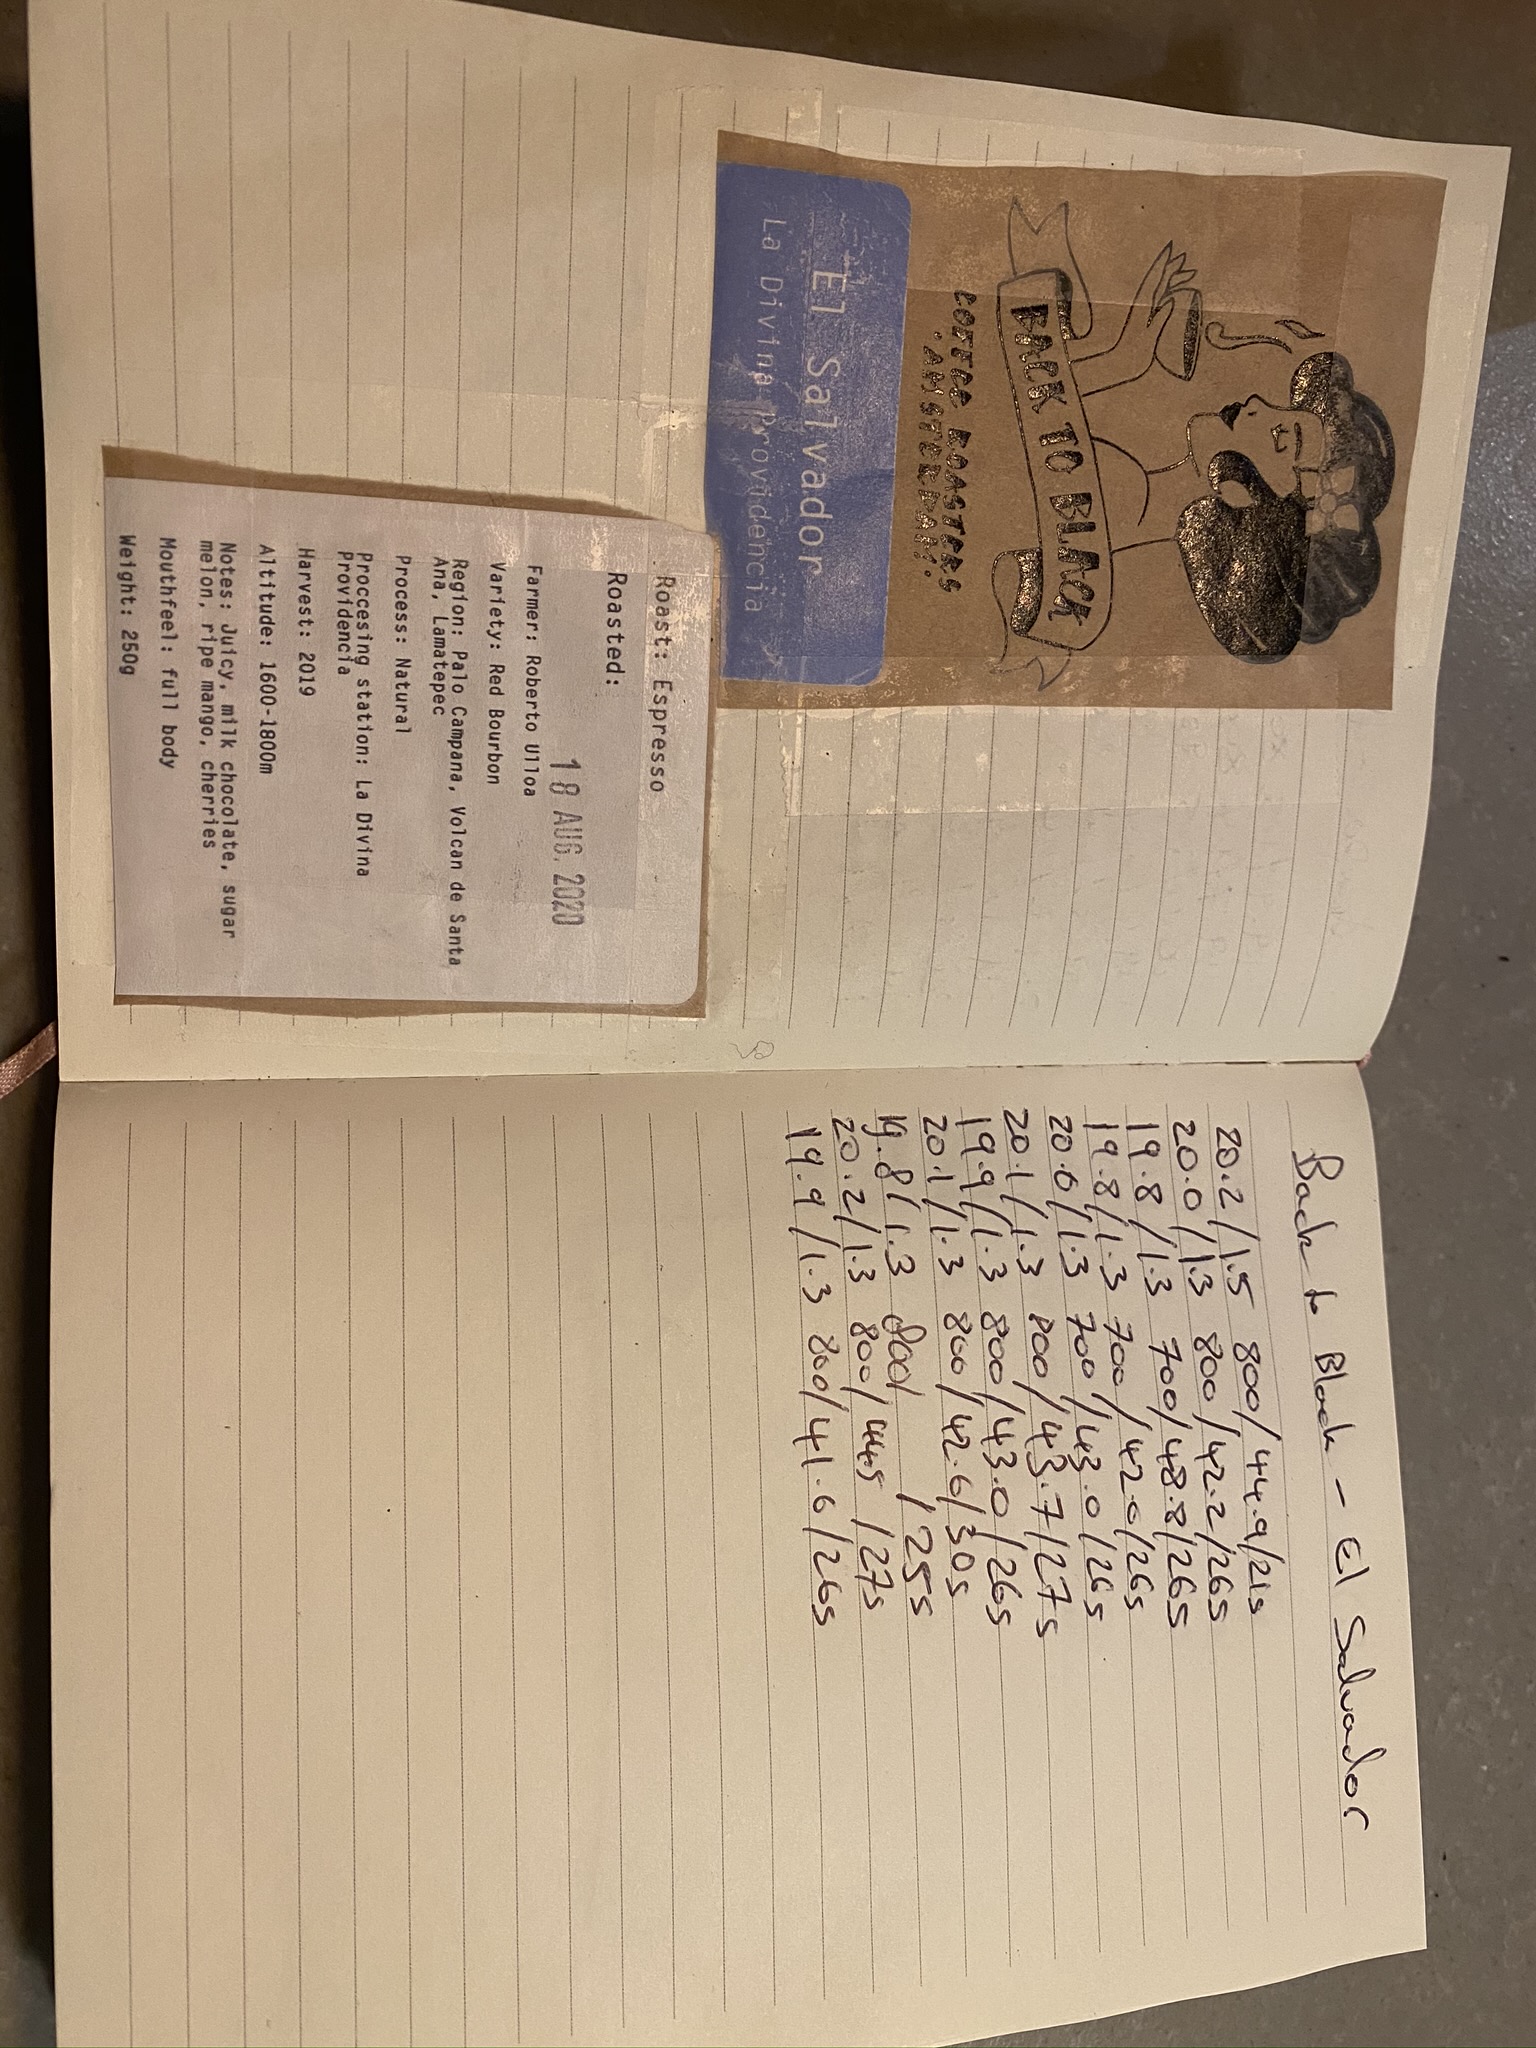 BACK TO BLACK
COFFEE ROASTERS
·AMSTERDAM·
El Salvador
La Divina Providencia
Roast: Espresso
Roasted:
18 AUG. 2020
Farmer: Roberto Ulloa
Variety: Red Bourbon
Region: Palo Campana, Volcan de Santa
Ana, Lamatepec
Process: Natural
Proccesing station: La Divina
Providencia
Harvest: 2019
Altitude: 1600-1800m
Notes: Juicy, milk chocolate, sugar
melon, ripe mango, cherries
Mouthfeel: full body
Weight: 250g
Back to Black - El Salvador
20.2/1.5 800/44.9/21s
20.0/1.3 800/42.2/26s
19.8/1.3 700/48.8/26s
19.8/1.3 700/42.0/26s
20.0/1.3 700/43.0/26s
20.1/1.3 800/43.7/27s
19.9/1.3 800/43.0/26s
20.1/1.3 800/42.6/30s
19.8/1.3 800/ /25s
20.2/1.3 800/44.5/27s
19.9/1.3 800/41.6/26s